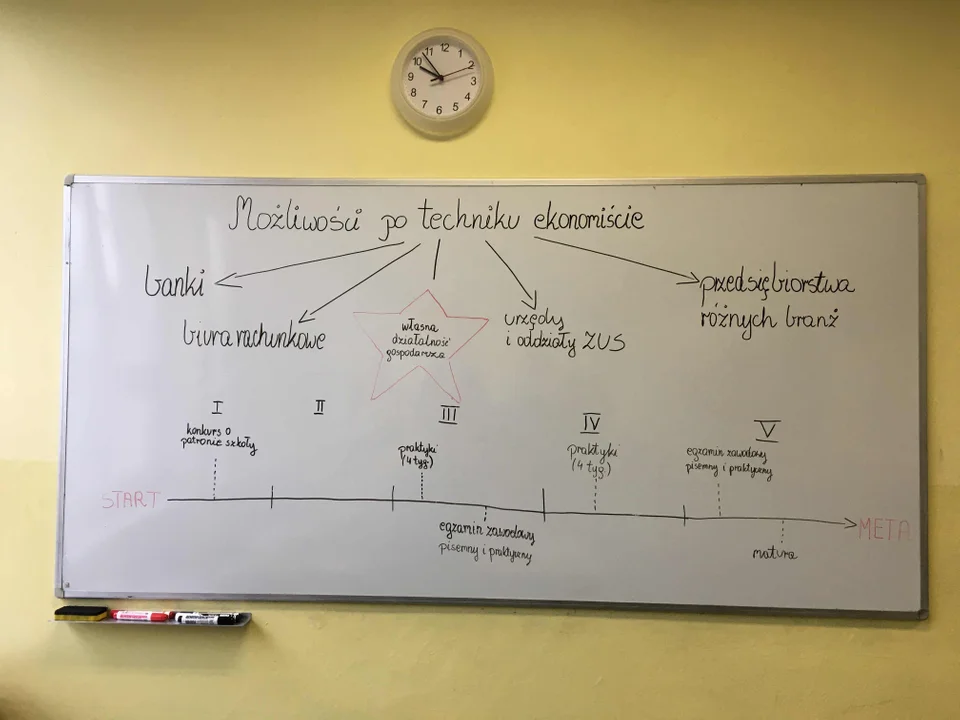 12
1
2
3
4
5
6
7
8
9
10
11
Możliwości po techniku ekonomiście
banki
biura rachunkowe
własna
działalność
gospodarcza
urzędy
i oddziały ZUS
przedsiębiorstwa
różnych branż
I
II
III
IV
V
konkurs o
patronie szkoły
praktyki
(4 tyg)
praktyki
(4 tyg)
egzamin zawodowy
pisemny i praktyczny
START
META
egzamin zawodowy
pisemny i praktyczny
matura